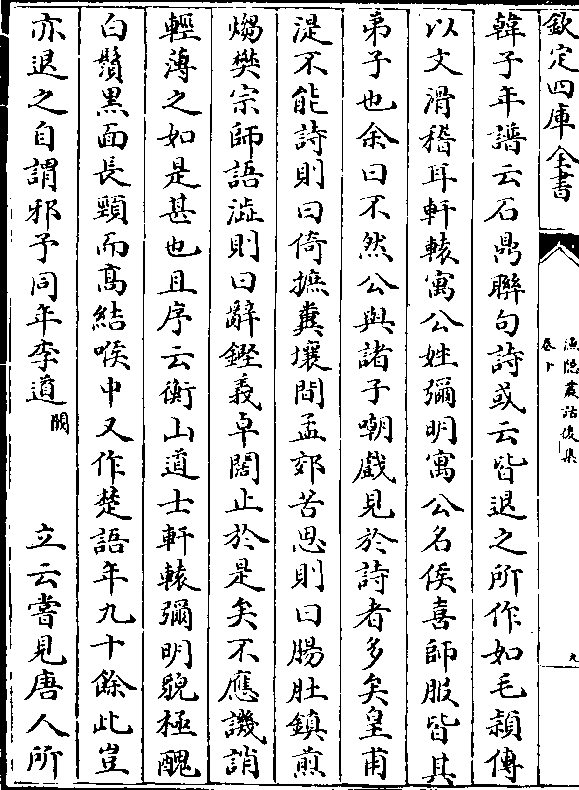 欽定四庫全書
漁隱叢話後集
卷十
九
韓子年譜云石鼎聯句詩或云皆退之所作如毛頴傳
以文滑稽耳軒轅寓公姓彌明寓公名侯喜師服皆其
弟子也余曰不然公與諸子嘲戲見於詩者多矣皇甫
湜不能詩則曰掎摭糞壤間孟郊苦思則曰腸肚鎮煎
㷅樊宗師語澁則曰辭鏗義卓闊止於是矣不應譏誚
輕薄之如是甚也且序云衡山道士軒轅彌明貌極醜
白鬚黒面長頸而髙結喉中又作楚語年九十餘此豈
亦退之自謂邪予同年李道闕立云嘗見唐人所